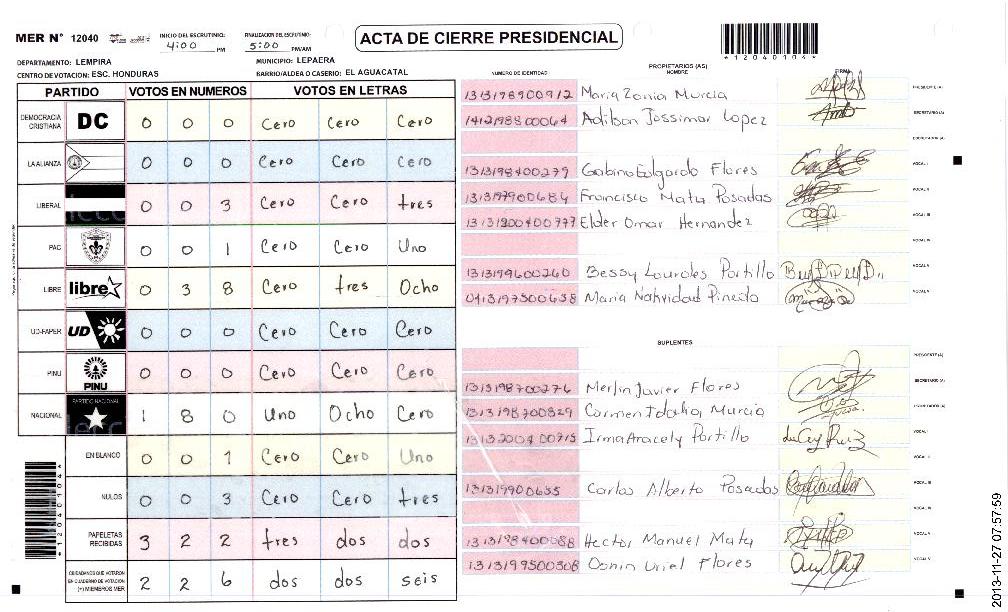 MER N° 12040
INICIO DEL ESCRUTINIO: 4:00 PM
FINALIZACION DEL ESCRUTINIO: 5:00 PM/AM
ACTA DE CIERRE PRESIDENCIAL
*12040104*
DEPARTAMENTO: LEMPIRA
MUNICIPIO: LEPAERA
CENTRO DE VOTACION: ESC. HONDURAS
BARRIO/ALDEA O CASERIO: EL AGUACATAL
PARTIDO VOTOS EN NUMEROS VOTOS EN LETRAS
DEMOCRACIA CRISTIANA DC 0 0 0 Cero Cero Cero
LA ALIANZA 0 0 0 Cero Cero Cero
LIBERAL 0 0 3 Cero Cero tres
PAC 0 0 1 Cero Cero Uno
LIBRE libre 0 3 8 Cero tres Ocho
UD-FAPER UD 0 0 0 Cero Cero Cero
PINU PINU 0 0 0 Cero Cero Cero
NACIONAL PARTIDO NACIONAL 1 8 0 Uno Ocho Cero
EN BLANCO 0 0 1 Cero Cero Uno
NULOS 0 0 3 Cero Cero tres
PAPELETAS RECIBIDAS 3 2 2 tres dos dos
CIUDADANOS QUE VOTARON EN CUADERNO DE VOTACION (+) MIEMBROS MER 2 2 6 dos dos seis
*12040104*
PROPIETARIOS (AS)
NUMERO DE IDENTIDAD NOMBRE FIRMA
1313198900912 Maria Zonia Murcia PRESIDENTE (A)
1412198800064 Adilson Jossimar Lopez SECRETARIO (A)
ESCRUTADOR (A)
1313198400279 Gabino Edgardo Flores VOCAL I
1313197900684 Francisco Mata Posadas VOCAL II
1313200400777 Elder Omar Hernandez VOCAL III
VOCAL IV
1313199600260 Bessy Lourdes Portillo VOCAL V
0413197500638 Maria Natividad Pineda VOCAL V
SUPLENTES
PRESIDENTE (A)
1313198700276 Merlin Javier Flores SECRETARIO (A)
1313198700829 Carmen Idalia Murcia ESCRUTADOR (A)
1313200400715 Irma Aracely Portillo VOCAL I
VOCAL II
131319900635 Carlos Alberto Posadas VOCAL III
VOCAL IV
1313198400088 Hector Manuel Mata VOCAL V
1313199500308 Osnin Uriel Flores VOCAL V
2013-11-27 07:57:59